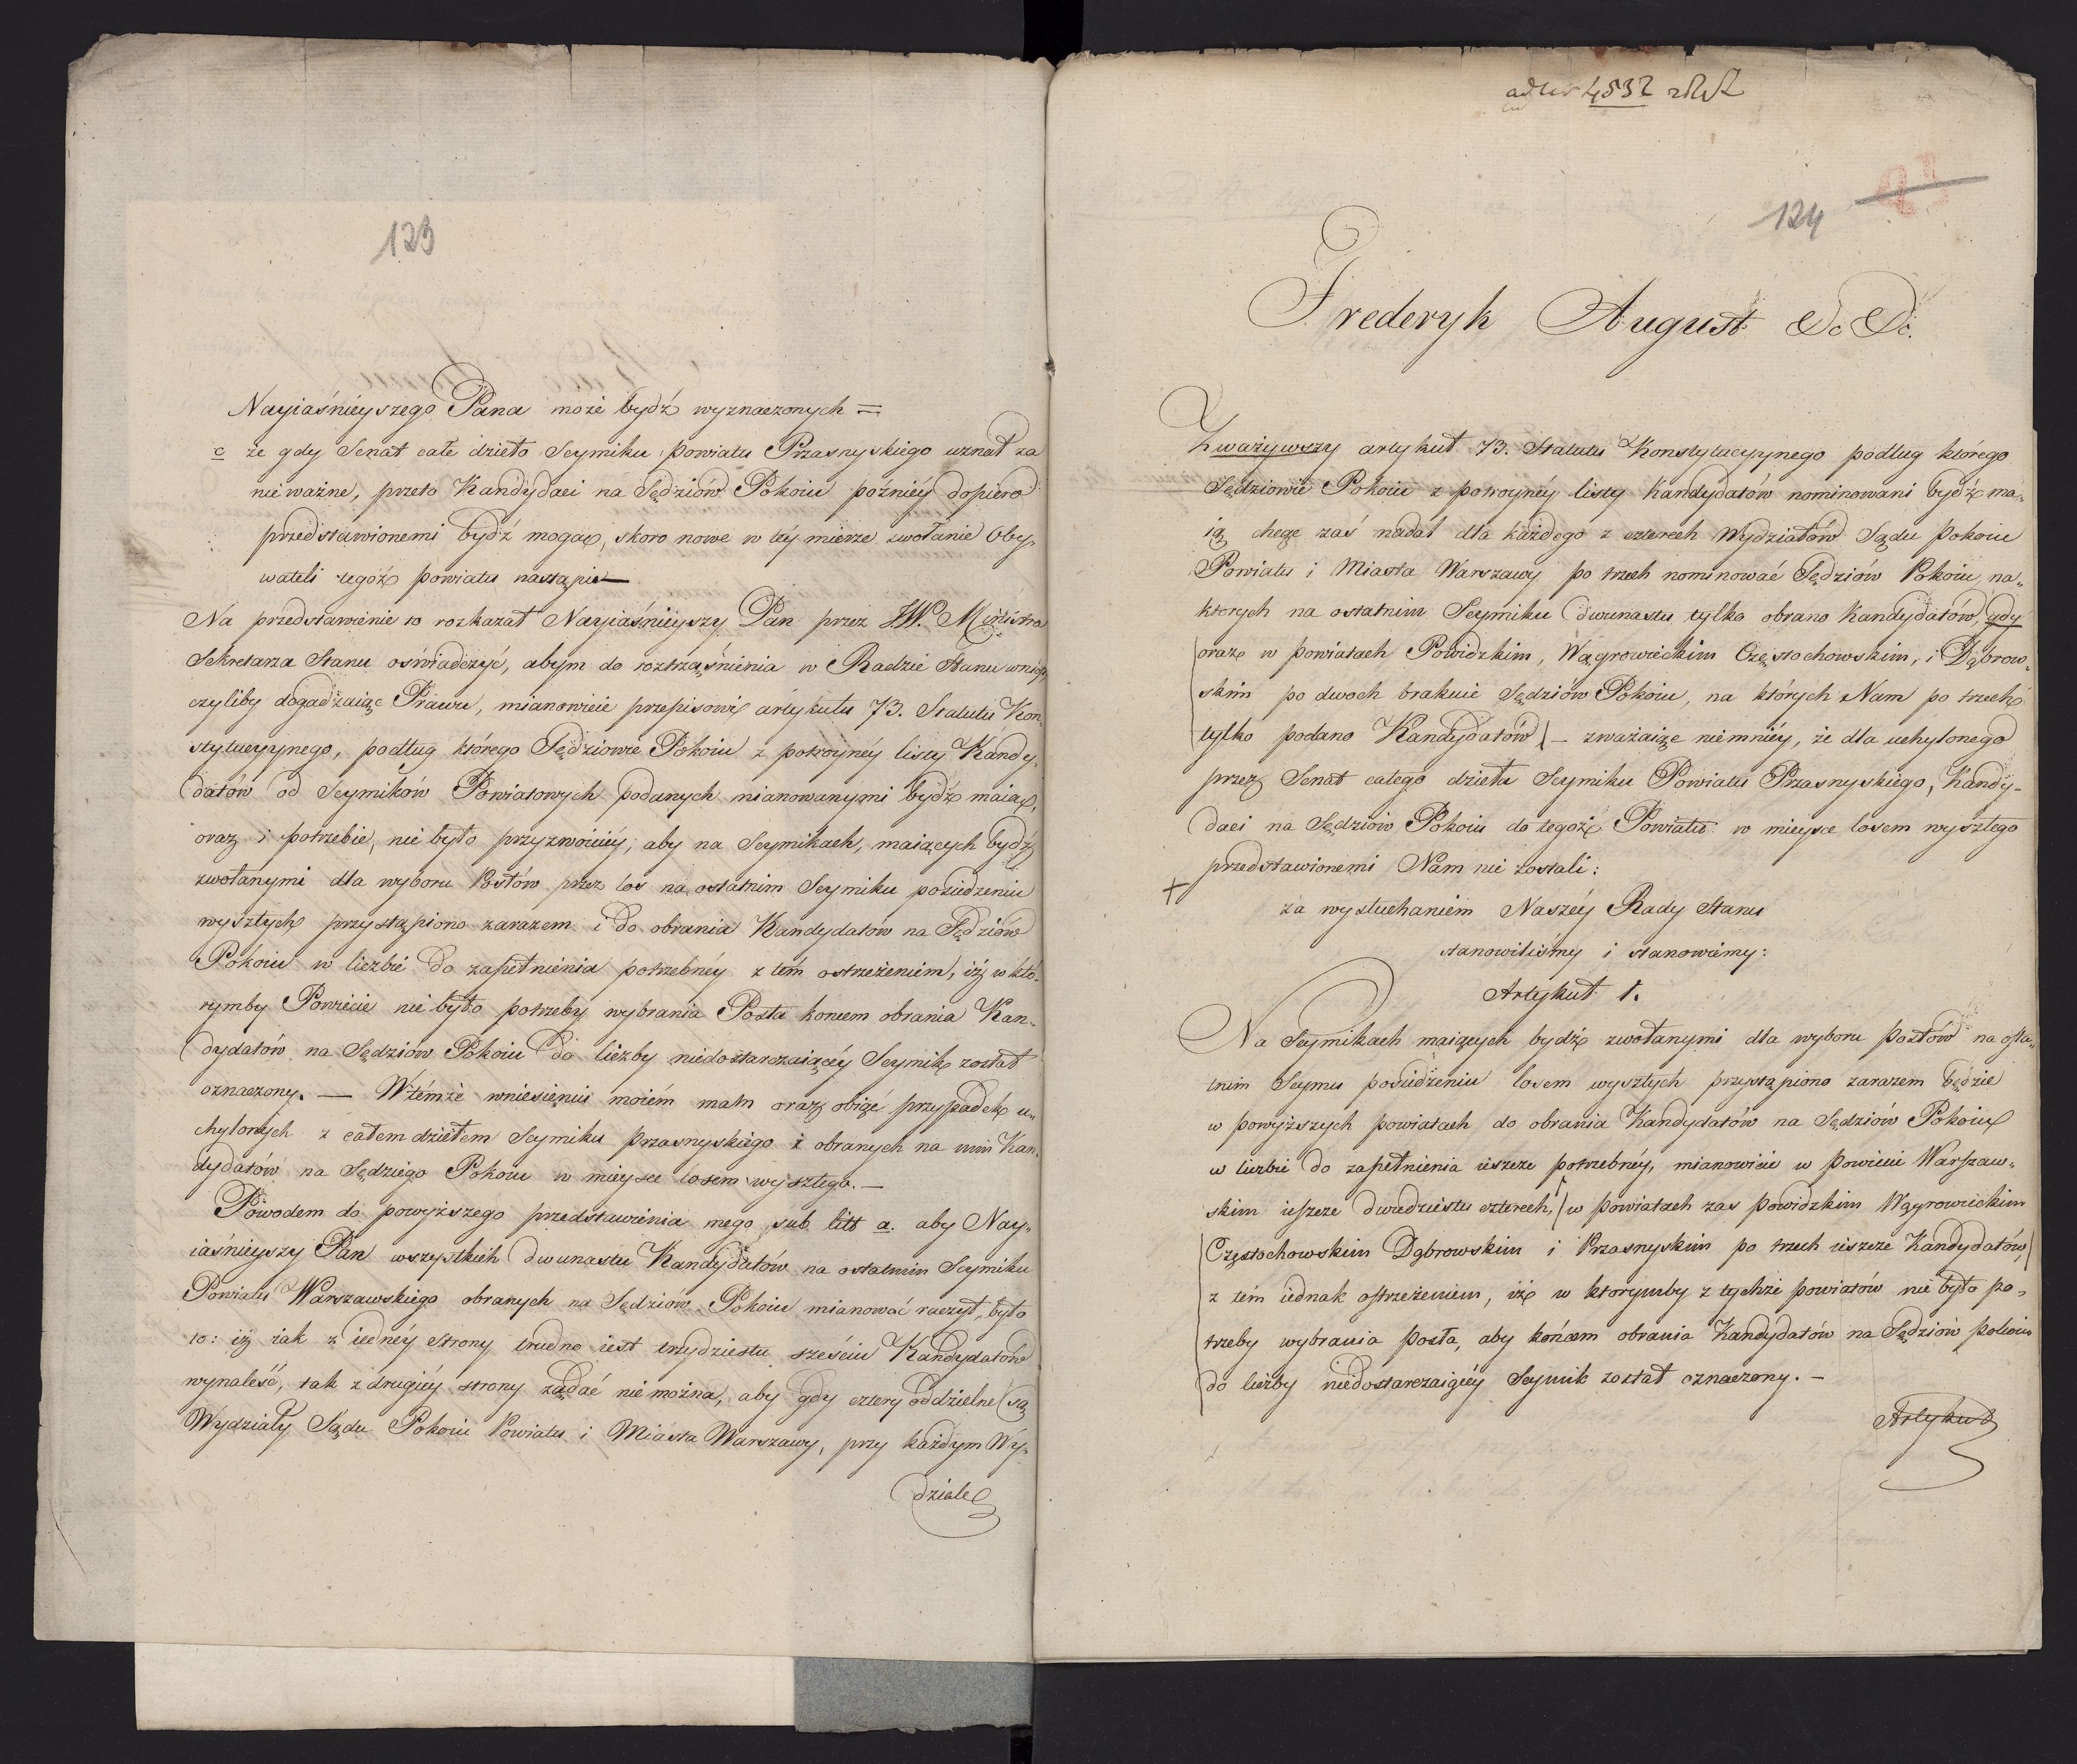 123
Nayiaśnieyszego Pana może bydź wyznaczonych =
c że gdy Senat całe dzieło Seymiku powiatu Przasnyskiego uznał za
nieważne, przeto Kandydaci na Sędziów Pokoiu późniéy dopiero
przedstawionemi bydź mogą, skoro nowe w téy mierze zwołanie Oby„
wateli tegóż powiatu nastąpi —
Na przedstawienie to rozkazał Nayiaśnieyszy Pan przez JW. Ministra
Sekretarza Stanu oświadczyć, abym do roztrząśnienia w Radzie Stanu wniósł,
czyliby dogadzaiąc Prawu, mianowicie przepisowi artykułu 73. Statutu Kon„
stytucyynego, podług którego Sędziowie Pokoiu z potróynéy listy Kandy„
datów od Seymików Powiatowych podanych mianowanymi bydź maią,
oraz i potrzebie, nie było przyzwoiciéy, aby na Seymikach, maiących bydź
zwołanymi dla wyboru Posłów przez los na ostatnim Seymiku posiedzeniu
wyszłych przystąpiono zarazem i do obrania Kandydatów na Sędziów
Pokoiu w liczbie do zapełnienia potrzebnéy z tém ostrzeżeniem, iż w któ„
rymby Powiecie nie było potrzeby wybrania Posła koncem obrania Kan„
dydatów na Sędziów Pokoiu do liczby niedostarczaiącéy Seymik został
oznaczony. — W témże wniesieniu moiém mam oraz obiąć przypadek u„
chylonych z całem dziełem Seymiku przasnyskiego i obranych na nim Kan„
dydatów na Sędziego Pokoiu w mieysce losem wyszłego. —
Powodem do powyższego przedstawienia mego sub litt a. aby Nay„
iaśnieyszy Pan wszystkich dwunastu Kandydatów na ostatnim Seymiku
Powiatu Warszawskiego obranych na Sędziów Pokoiu mianować raczył, było
to: iż iak z iednéy strony trudno iest trzydziestu sześciu Kandydatów
wynaleść, tak z drugiéy strony żądać nie można, aby gdy cztery oddzielne są
Wydziały Sądu Pokoiu Powiatu i Miasta Warszawy, przy każdym Wy„
dziale
4532
124
Frederyk August &c &c.
Zważywszy artykuł 73. Statutu Konstytucyynego podług którego
Sędziowie Pokoiu z potroynéy listy Kandydatów nominowani bydź ma„
ią chcąc zaś nadal dla każdego z czterech Wydziałów Sądu Pokoiu
Powiatu i Miasta Warszawy po trzech nominować Sędziów Pokoiu, na„
ktorych na ostatnim Seymiku dwunastu tylko obrano Kandydatów, gdy
oraz w powiatach Powidzkim, Wągrowieckim Częstochowskim, i Dąbrow„
skim po dwoch brakuie Sędziów Pokoiu, na których Nam po trzech
tylko podano Kandydatów — zważaiąc niemniéy, że dla uchylonego
przez Senat całego dzieła Seymiku Powiatu Przasnyskiego, Kandy-
daci na Sędziów Pokoiu do tegoż Powiatu w mieysce losem wyszłego
przedstawionemi Nam nie zostali:
+
za wysłuchaniem Naszéy Rady Stanu
stanowiliśmy i stanowimy:
Artykuł 1.
Na Seymikach maiących bydź zwołanymi dla wyboru posłów na osta„
tnim Seymu posiedzeniu losem wyszłych przystąpiono zarazem będzie
w powyższych powiatach do obrania Kandydatów na Sędziów Pokoiu
w liczbie do zapełnienia ieszcze potrzebnéy, mianowicie w powiecie Warszaw„
skim ieszcze dwudziestu czterech, w powiatach zas powidzkim Wągrowieckim
Częstochowskim Dąbrowskim i Przasnyskim po trzech ieszcze Kandydatów,
z tém iednak ostrzeżeniem, iż w ktorymby z tychże powiatów nie było po„
trzeby wybrania posła, aby końcem obrania Kandydatów na Sędziów pokoiu
do liczby niedostarczaiącéy Seymik został oznaczony. —
Artykuł